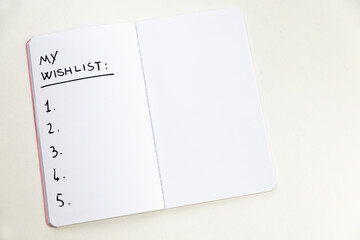 MY
WISHLIST:
1.
2.
3.
4.
5.